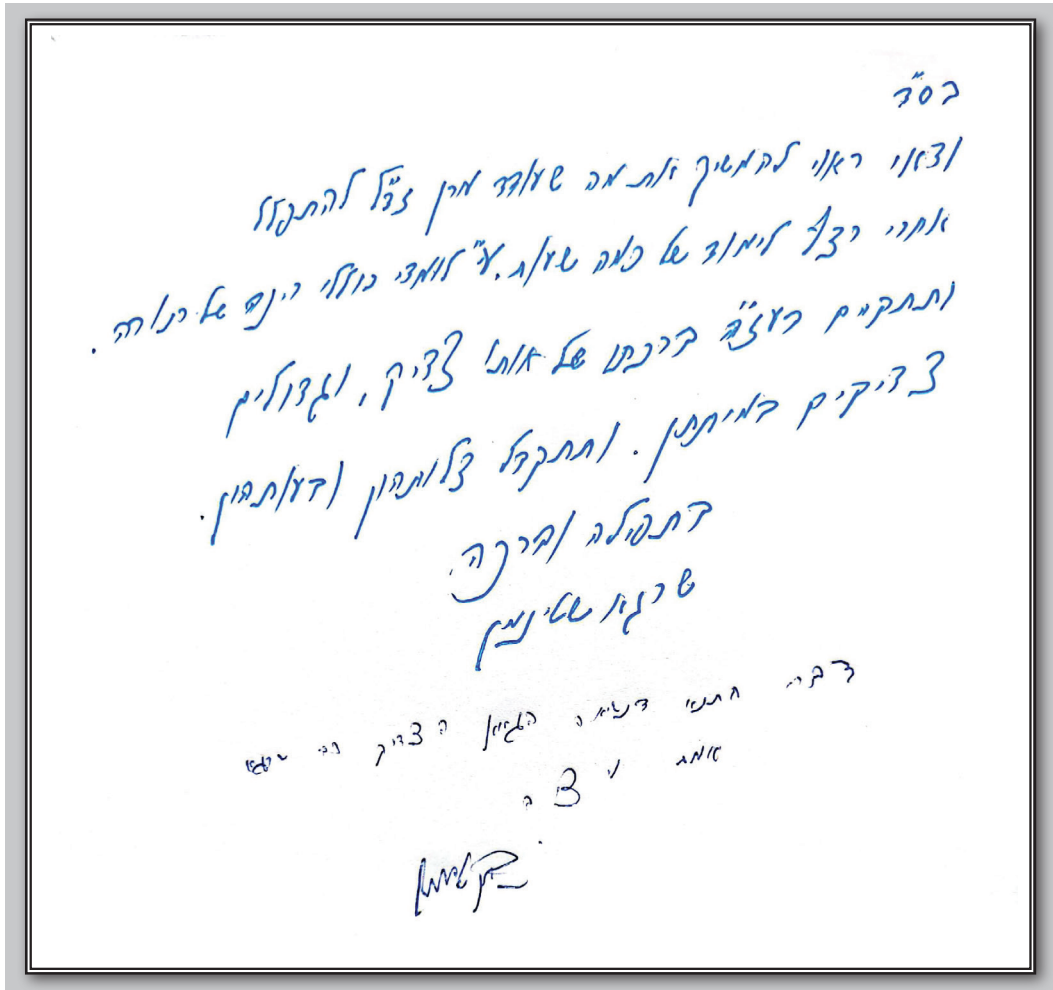 בס"ד
ודאי ראוי להמשיך את מה שעודד מרן זצ"ל להתפלל
אחרי רצף לימוד של כמה שעות, ע"י לומדי כוללי רינה של תורה.
ותתקיים בעז"ה ברכתו של אותו צדיק, וגדולים
צדיקים במיתתן. ותתקבל צלותהון ובעותהון.
בתפילה וברכה
שרגא שטינמן
דברי חתנא דנשיאה הגאון הצדיק רבי שרגא
אמת